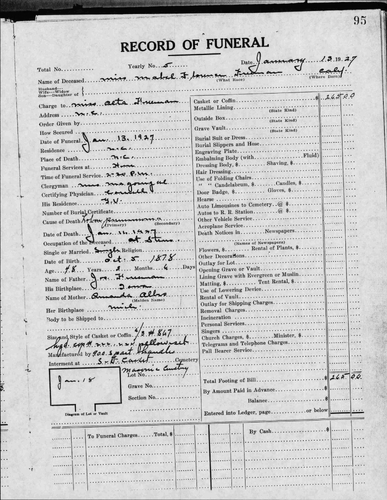 95
RECORD OF FUNERAL
Total No. Yearly No. 5 Date January 13 1927
Name of Deceased Miss Mabel Freeman Calif.
(What Race) (Where Born)
Husband—
Wife—Widow
Son—Daughter of
Charge to Miss Alta Freeman
Address N.C.
Order Given by
How Secured
Date of Funeral Jan. 13, 1927
Residence N.C.
Place of Death N.C.
Funeral Services at Home
Time of Funeral Service 2:30 P.M.
Clergyman
Certifying Physician
His Residence G.V.
Number of Burial Certificate
Cause of Death Lobar Pneumonia
(Primary) (Secondary)
Date of Death Jan. 1927
Occupation of the Deceased
Single or Married Single Religion
Date of Birth Oct. 5 1878
Age 48 3 Months 6 Days
Name of Father Jos. Freeman
His Birthplace Iowa
Name of Mother Amanda
(Maiden Name)
Her Birthplace Mich.
Body to be Shipped to
Size and Style of Casket or Coffin 6/3 # 867
Manufactured by
Interment at Cemetery
Lot No. Masonic
Grave No.
Section No.
Jan. 18
Diagram of Lot or Vault
Casket or Coffin $ 265.00
Metallic Lining
(State Kind)
Outside Box
(State Kind)
Grave Vault
(State Kind)
Burial Suit or Dress
Burial Slippers and Hose
Engraving Plate
Embalming Body (with Fluid)
Dressing Body, $ Shaving, $
Hair Dressing
Use of Folding Chairs
" " Candelabrum, $ Candles, $
Door Badge, $ Gloves, $
Hearse
Auto Limousines to Cemetery @ $
Autos to R. R. Station @ $
Other Vehicle Service
Aeroplane Service
Death Notices in Newspapers
(Names of Newspapers)
Flowers, $ Rental of Plants, $
Other Decorations
Outlay for Lot
Opening Grave or Vault
Lining Grave with Evergreen or Muslin
Matting, $ Tent Rental, $
Use of Lowering Device
Rental of Vault
Outlay for Shipping Charges
Removal Charges
Incineration
Personal Services
Singers
Church Charges, $ Minister, $
Telegrams and Telephone Charges
Pall Bearer Service
Total Footing of Bill $ 265.00
By Amount Paid in Advance
Balance
Entered into Ledger, page or below
To Funeral Charges Total, $ By Cash $